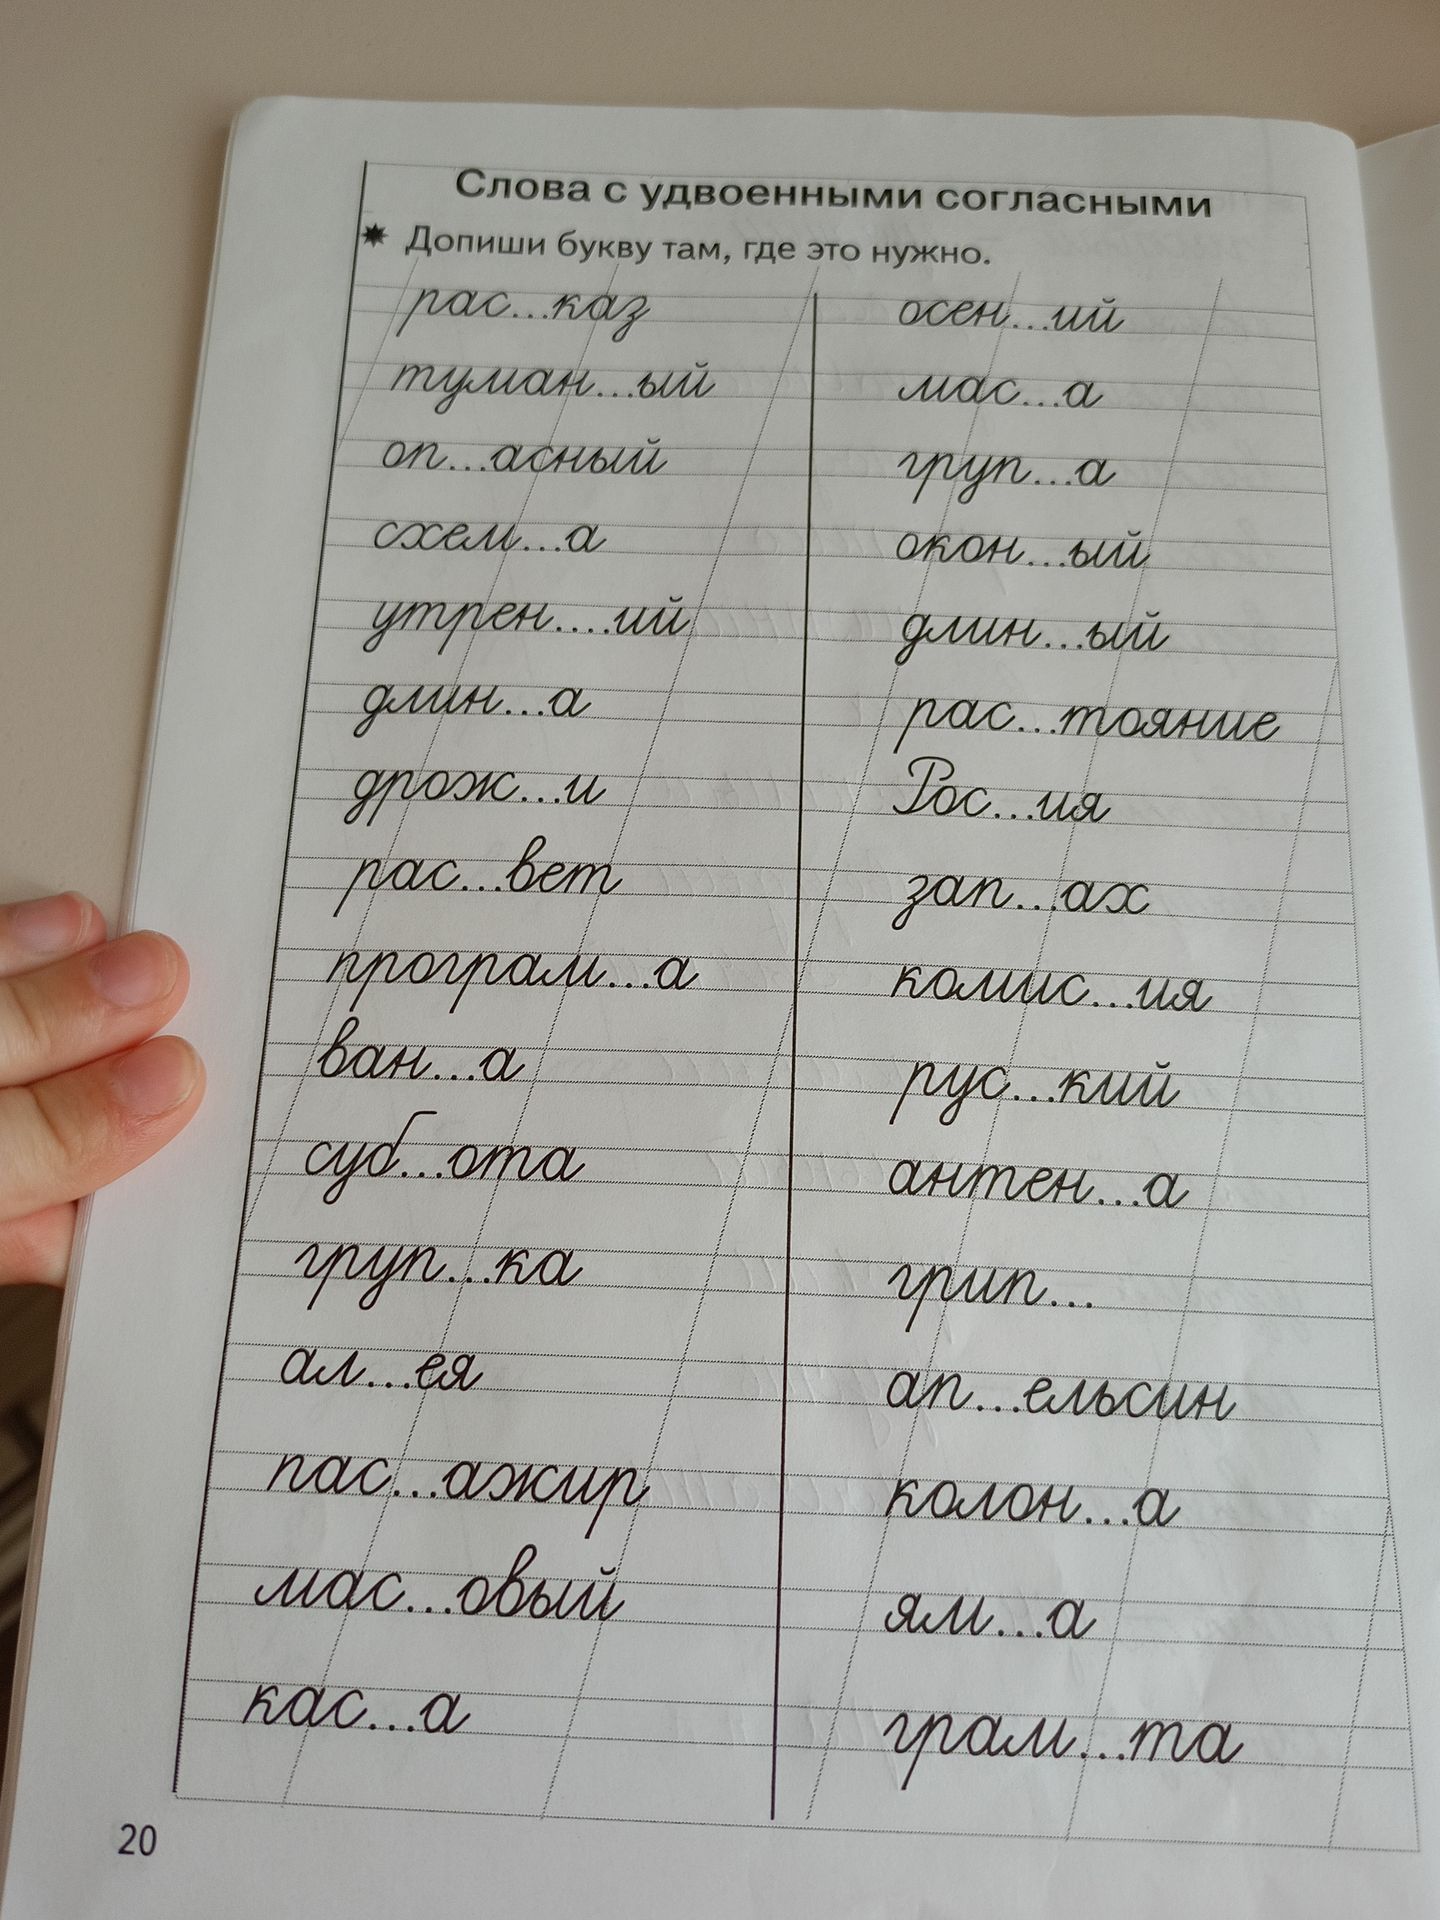 Слова с удвоенными согласными
Допиши букву там, где это нужно.
рас...каз
туман...ый
оп...асный
схем...а
утрен....ий
длин...а
дрож...и
рас...вет
програм...а
ван...а
суб...ота
груп...ка
ал...ея
пас...ажир
мас...овый
кас...а
осен...ий
мас...а
груп...а
окон...ый
длин...ый
рас...тояние
Рос...ия
зап...ах
комис...ия
рус...кий
антен...а
грип...
ап...ельсин
колон...а
ям...а
грам...та
20